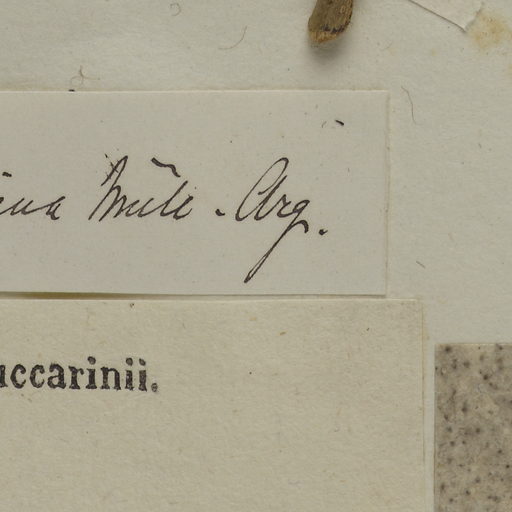 Müll-Arg.
uccarinii.